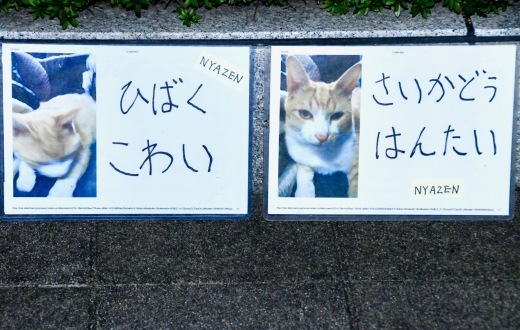 NYAZEN
ひばく
こわい
さいかどう
はんたい
NYAZEN